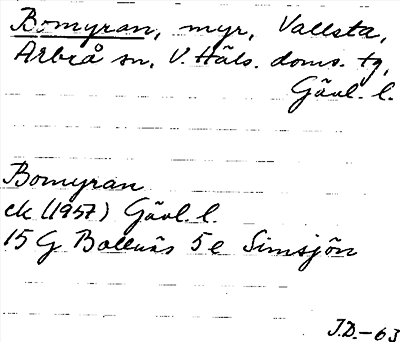 Bomyran, myr, Vallsta,
Arbrå sn, V. Häls. doms. tg,
Gävl. l.
Bomyran
ek (1957) Gävl. l.
15 G Bollnäs 5 e Simsjön
J.D.–63